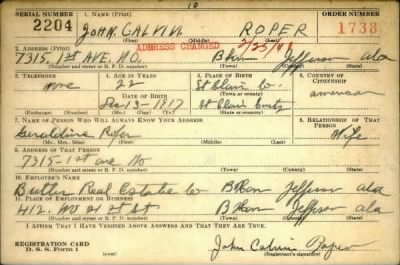 SERIAL NUMBER 1. NAME (Print) ORDER NUMBER
2204 JOHN CALVIN ROPER 1738
(First) (Middle) (Last)
2. ADDRESS (Print) ADDRESS CHANGED
7315 1st AVE. NO. B'ham Jefferson ala
(Number and street or R. F. D. number) (Town) (County) (State)
3. TELEPHONE 4. AGE IN YEARS 5. PLACE OF BIRTH 6. COUNTRY OF CITIZENSHIP
none 22 St Clair Co. american
DATE OF BIRTH
Dec-13-1917 St Clair County
(Exchange) (Number) (Mo.) (Day) (Yr.) (State or country)
7. NAME OF PERSON WHO WILL ALWAYS KNOW YOUR ADDRESS 8. RELATIONSHIP OF THAT PERSON
Geraldine Roper Wife
(Mr., Mrs., Miss) (First) (Middle) (Last)
9. ADDRESS OF THAT PERSON
7315-1st ave No
(Number and street or R. F. D. number) (Town) (County) (State)
10. EMPLOYER'S NAME
Butler Real Estate Co B'Ham Jefferson ala
11. PLACE OF EMPLOYMENT OR BUSINESS
412 No 21st St B'Ham Jefferson ala
(Number and street or R. F. D. number) (Town) (County) (State)
I AFFIRM THAT I HAVE VERIFIED ABOVE ANSWERS AND THAT THEY ARE TRUE.
REGISTRATION CARD
D. S. S. Form 1 John Calvin Roper
(Registrant's signature)